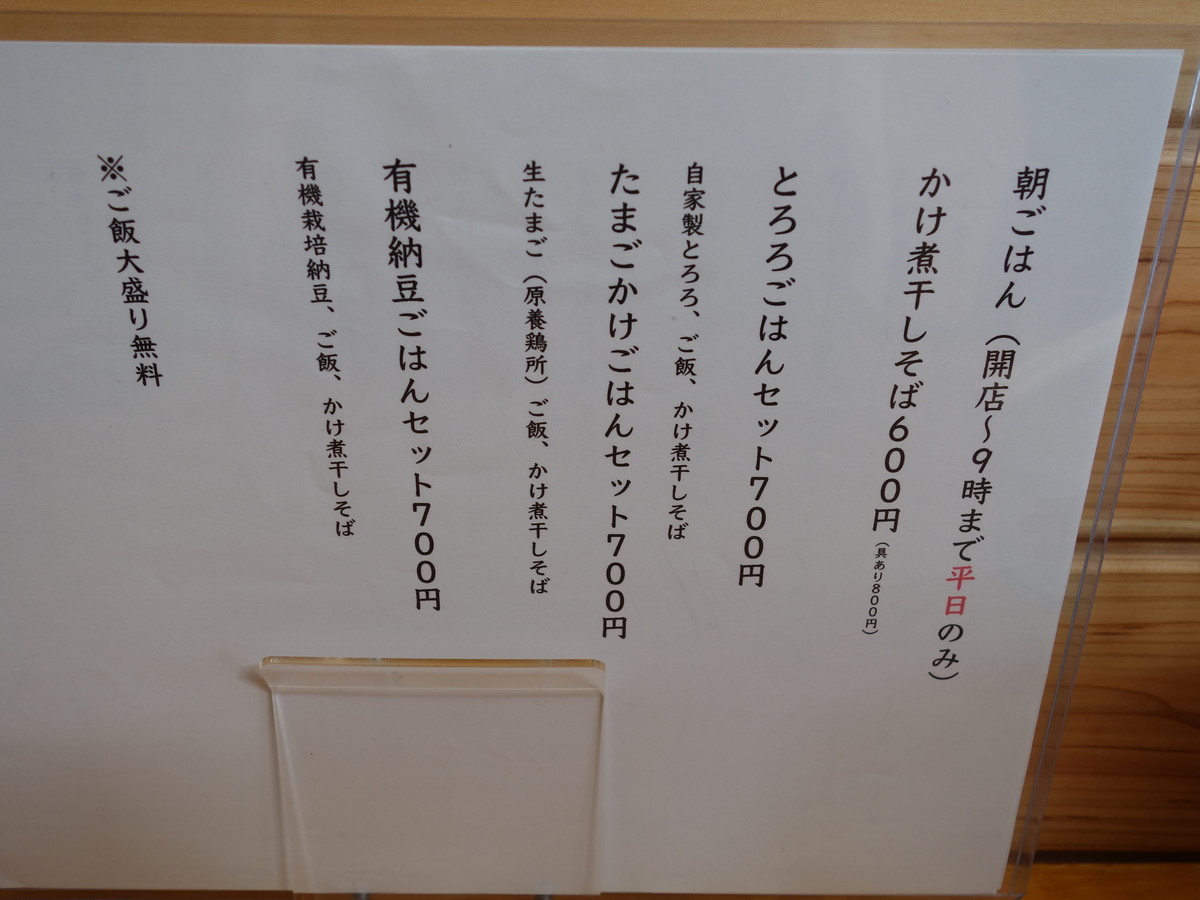 朝ごはん（開店～9時まで平日のみ）
かけ煮干しそば600円（具あり800円）
とろろごはんセット700円
自家製とろろ、ご飯、かけ煮干しそば
たまごかけごはんセット700円
生たまご（原養鶏所）ご飯、かけ煮干しそば
有機納豆ごはんセット700円
有機栽培納豆、ご飯、かけ煮干しそば
※ご飯大盛り無料